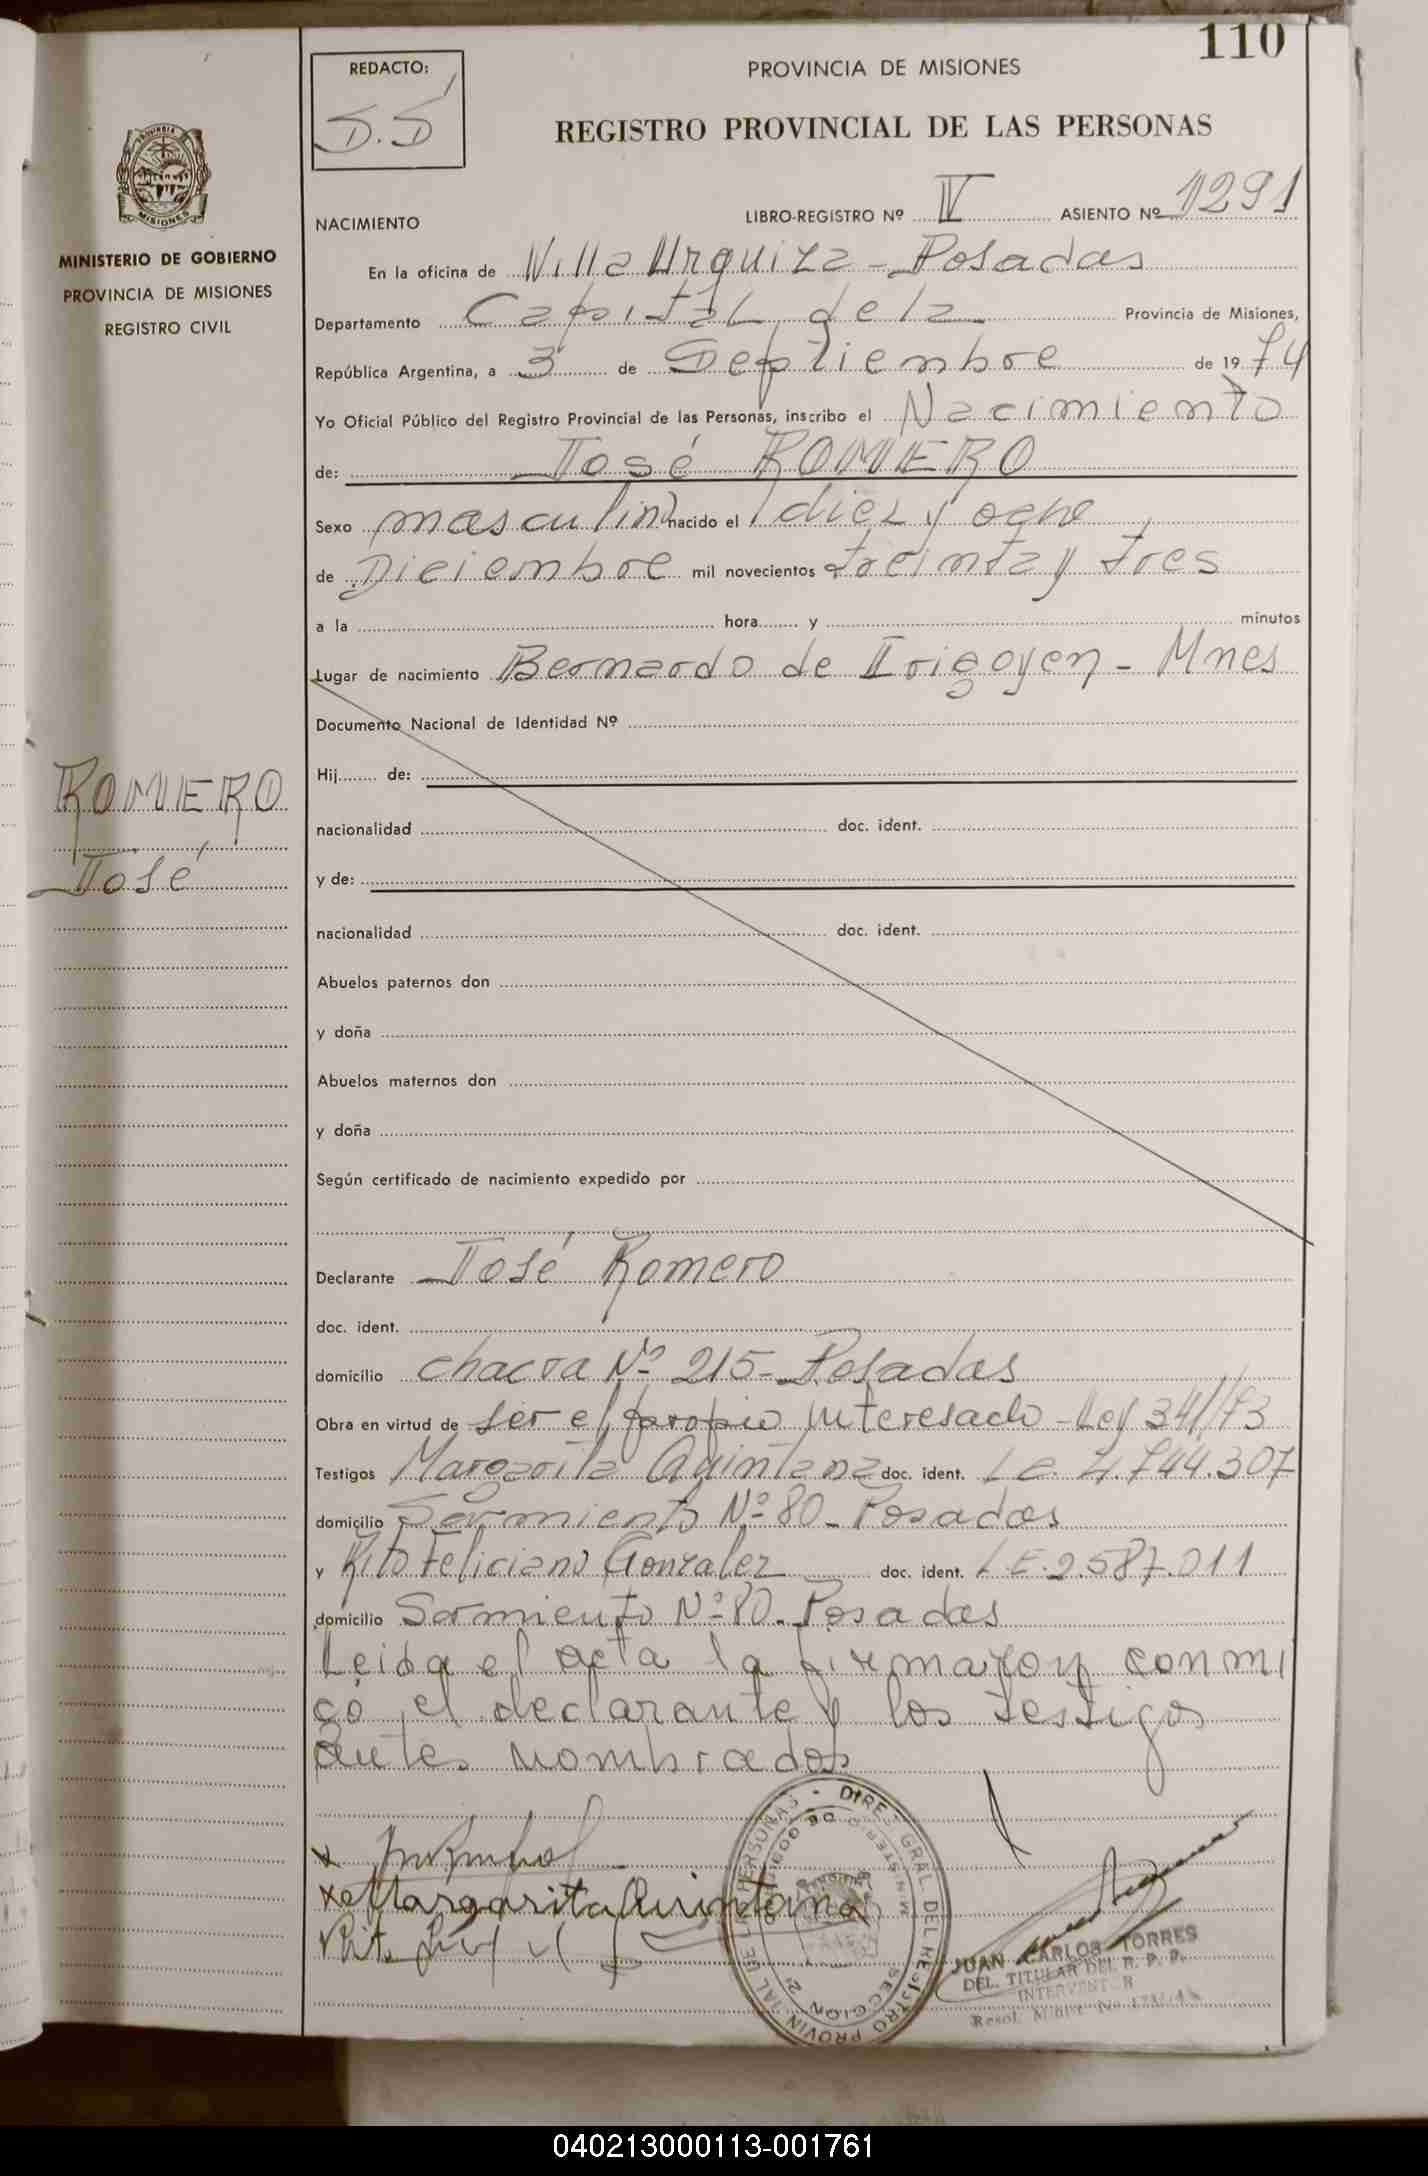 110
REDACTO:
PROVINCIA DE MISIONES
D.D
REGISTRO PROVINCIAL DE LAS PERSONAS
PROVINCIA DE
MISIONES
NACIMIENTO
LIBRO-REGISTRO Nº IV ASIENTO Nº 1291
MINISTERIO DE GOBIERNO
PROVINCIA DE MISIONES
REGISTRO CIVIL
En la oficina de Villa Urquiza - Posadas
Departamento Capital de la Provincia de Misiones,
República Argentina, a 3 de Septiembre de 1974
Yo Oficial Público del Registro Provincial de las Personas, inscribo el Nacimiento
de: José ROMERO
Sexo masculino nacido el diez y ocho
de Diciembre mil novecientos treinta y tres
a la hora y minutos
Lugar de nacimiento Bernardo de Irigoyen - Mnes
Documento Nacional de Identidad Nº
ROMERO
José
Hij de:
nacionalidad doc. ident.
y de:
nacionalidad doc. ident.
Abuelos paternos don
y doña
Abuelos maternos don
y doña
Según certificado de nacimiento expedido por
Declarante José Romero
doc. ident.
domicilio chacra Nº 215 - Posadas
Obra en virtud de ser el propio interesado - Ley 341/73
Testigos Margarita Quintana doc. ident. L.C. 4.744.307
domicilio Sarmiento Nº 80 - Posadas
y Rito Feliciano Gonzalez doc. ident. L.E. 2.587.011
domicilio Sarmiento Nº 80 - Posadas
Leida el acta la firmaron conmi
go el declarante y los testigos
antes nombrados
x
x Margarita Quintana
DIREC. GRAL. DEL REGISTRO PROVINCIAL DE LAS PERSONAS
MINISTERIO DE GOBIERNO
SECCION 2ª
JUAN CARLOS TORRES
DEL. TITULAR DEL R. P. P.
INTERVENTOR
040213000113-001761